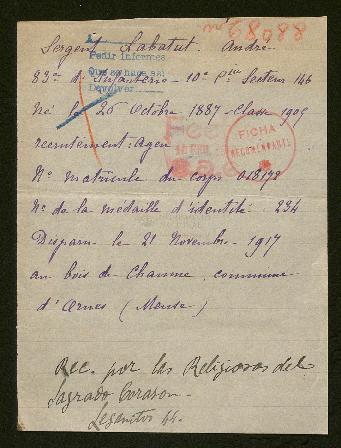 nu 98088
Sergent Labatut. André
Pedir informes
Que se hace así
Devolver
83e d'Infanterie - 10e Cie Secteur 146
Né le 26 Octobre 1887 - Classe 1907
recrutement: Agen
FICHA
RECOMENDADA
No matricule du corps 018178
No de la médaille d'identité 234
Disparu le 21 Novembre 1917
au bois de Chamme, commune
d'Ornes (Meuse)
Rec. por las Religiosas del
Sagrado Corazon
Leganitos 44.